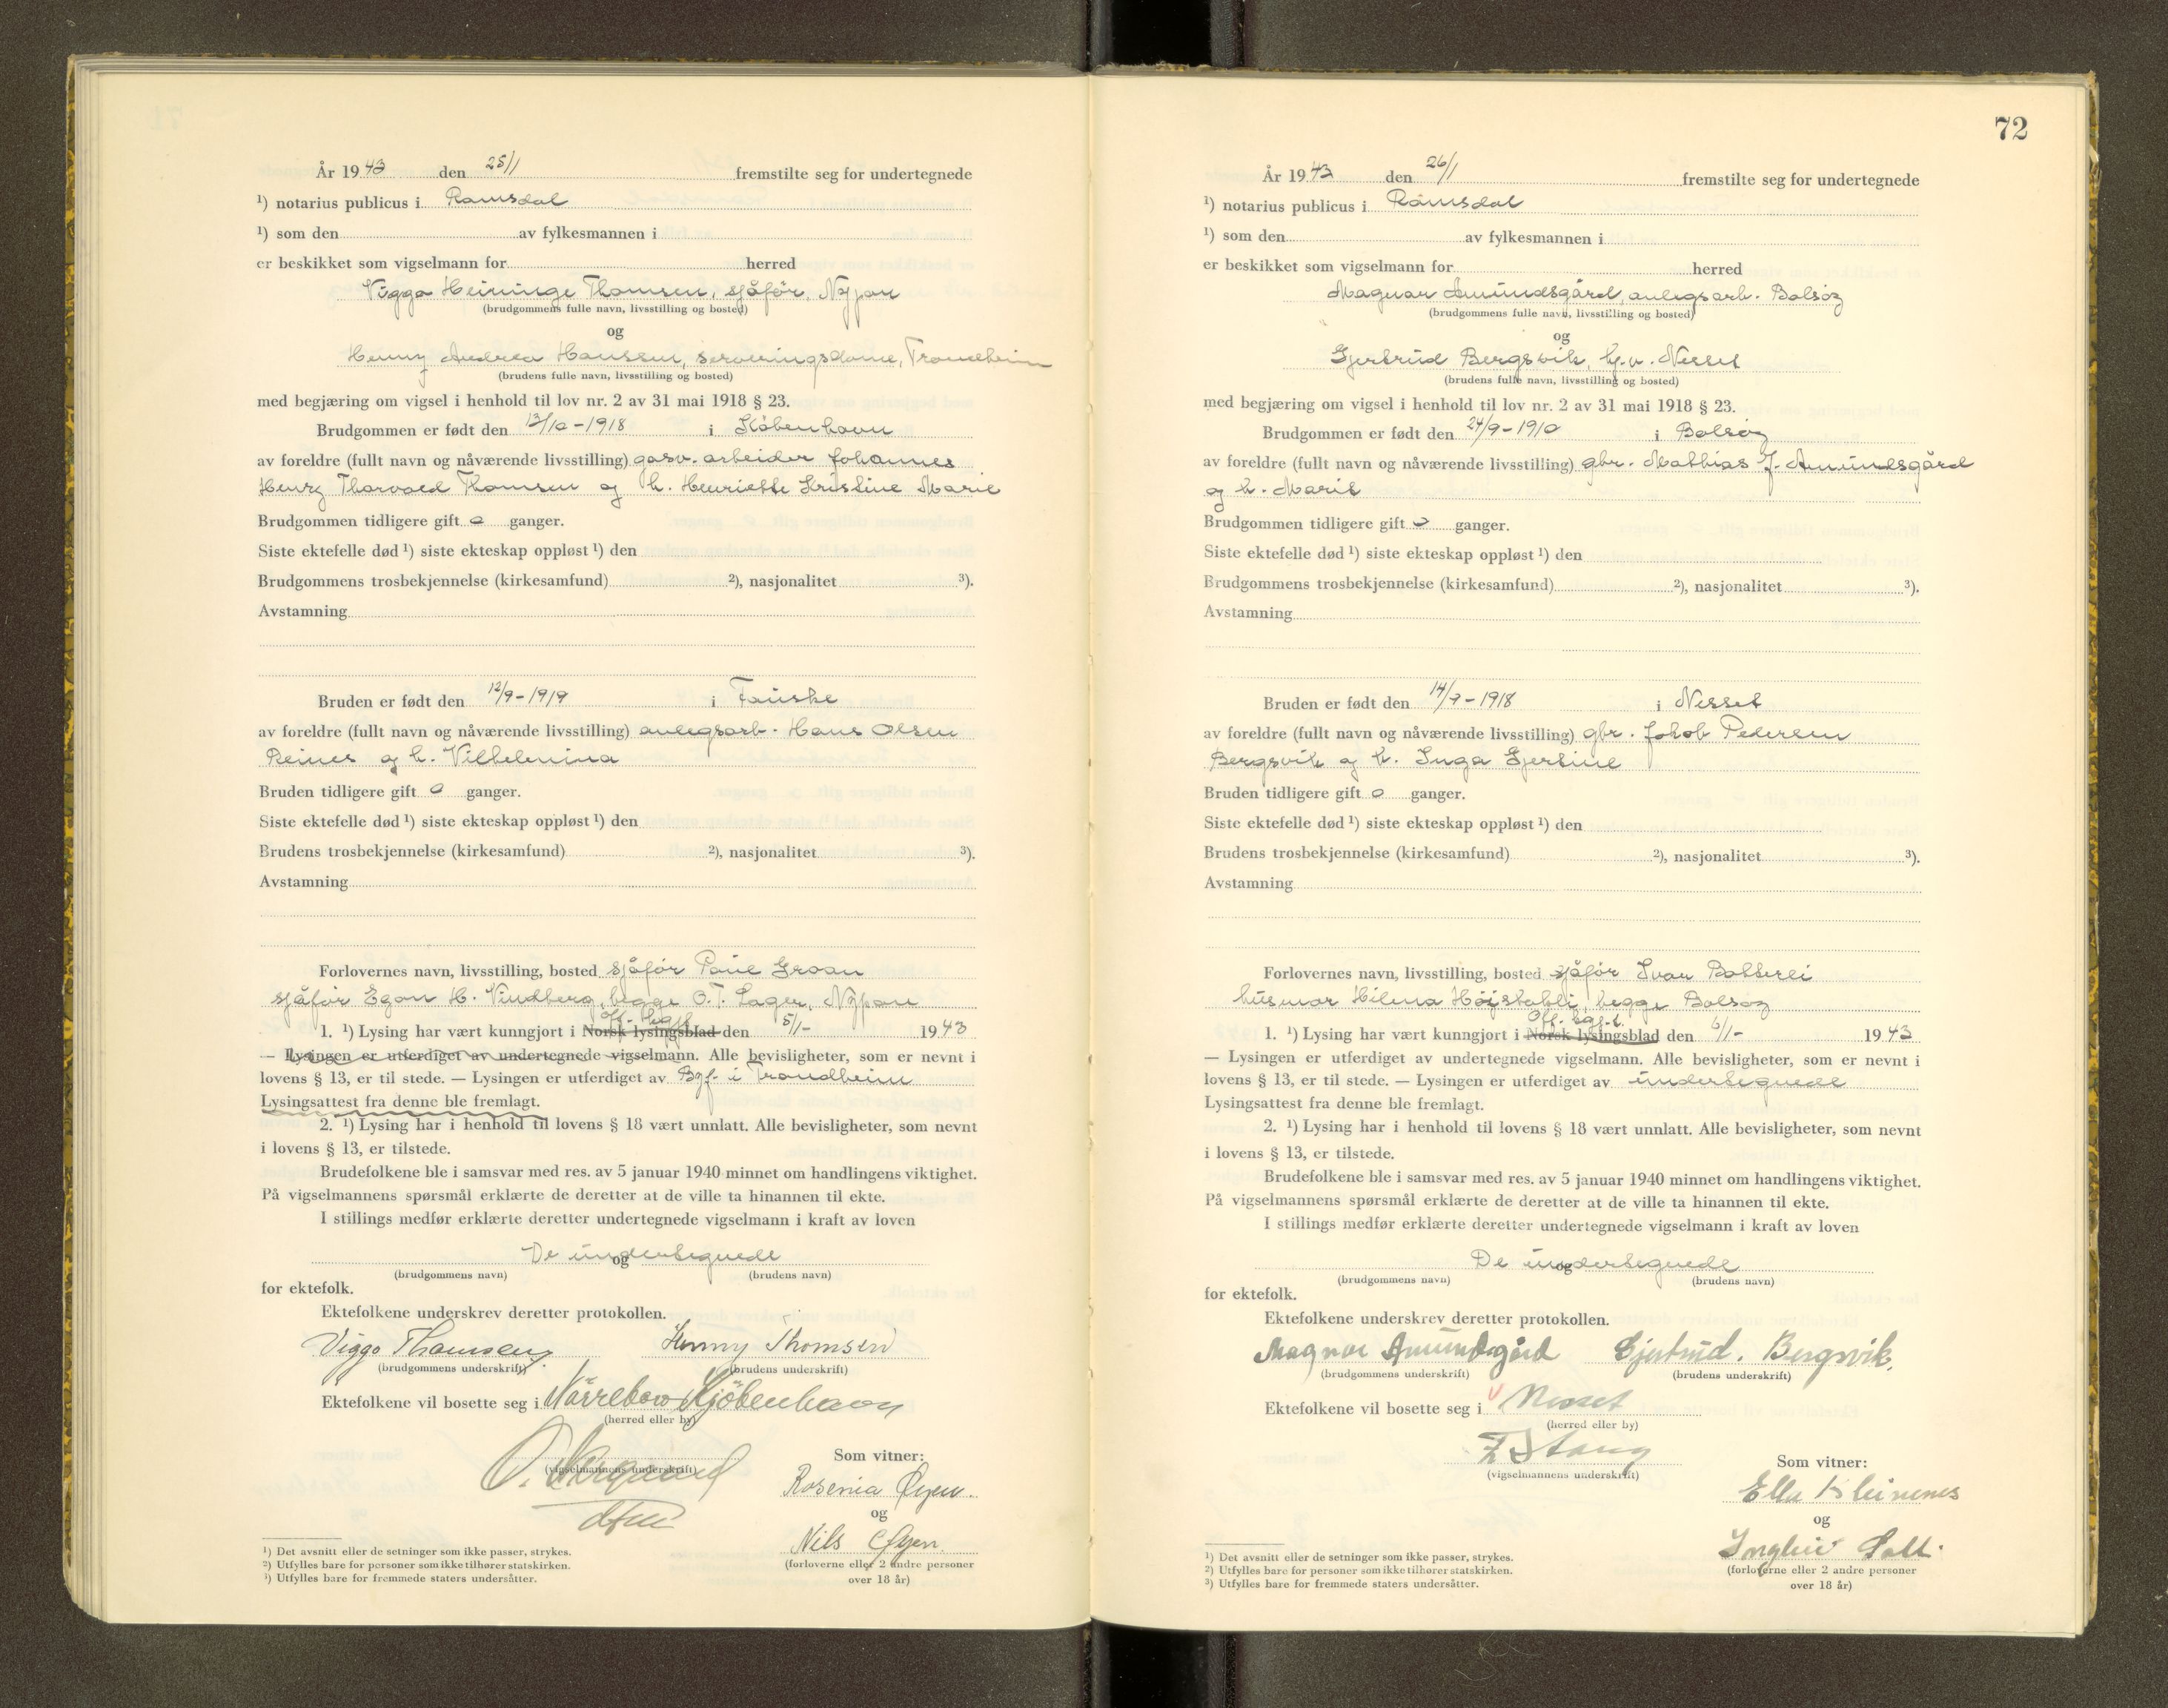 År 1943 den 25/1 fremstilte seg for undertegnede
¹) notarius publicus i Romsdal
¹) som den av fylkesmannen i
er beskikket som vigselmann for herred
Viggo Henninge Thomsen, sjåfør, Nypan
(brudgommens fulle navn, livsstilling og bosted)
og
Henny Andrea Hanssen, serveringsdame, Trondheim
(brudens fulle navn, livsstilling og bosted)
med begjæring om vigsel i henhold til lov nr. 2 av 31 mai 1918 § 23.
Brudgommen er født den 13/10-1918 i København
av foreldre (fullt navn og nåværende livsstilling) gasv. arbeider Johannes
Henry Thorvald Thomsen og h. Henriette Kristine Marie
Brudgommen tidligere gift 0 ganger.
Siste ektefelle død ¹) siste ekteskap oppløst ¹) den
Brudgommens trosbekjennelse (kirkesamfund) ²), nasjonalitet ³).
Avstamning
Bruden er født den 12/9-1919 i Fauske
av foreldre (fullt navn og nåværende livsstilling) anlegsarb. Hans Olsen
Reines og h. Vilhelmina
Bruden tidligere gift 0 ganger.
Siste ektefelle død ¹) siste ekteskap oppløst ¹) den
Brudens trosbekjennelse (kirkesamfund) ²), nasjonalitet ³).
Avstamning
Forlovernes navn, livsstilling, bosted sjåfør Poul Graan
sjåfør Egon H. Vindberg, begge O.T. Lager, Nypan
off. bkgj.
1. ¹) Lysing har vært kunngjort i Norsk lysingsblad den 5/1- 1943
— Lysingen er utferdiget av undertegnede vigselmann. Alle bevisligheter, som er nevnt i
lovens § 13, er til stede. — Lysingen er utferdiget av Bgf. i Trondheim
Lysingsattest fra denne ble fremlagt.
2. ¹) Lysing har i henhold til lovens § 18 vært unnlatt. Alle bevisligheter, som nevnt
i lovens § 13, er tilstede.
Brudefolkene ble i samsvar med res. av 5 januar 1940 minnet om handlingens viktighet.
På vigselmannens spørsmål erklærte de deretter at de ville ta hinannen til ekte.
I stillings medfør erklærte deretter undertegnede vigselmann i kraft av loven
De undertegnede
og
(brudgommens navn) (brudens navn)
for ektefolk.
Ektefolkene underskrev deretter protokollen.
Viggo Thomsen. Henny Thomsen
(brudgommens underskrift) (brudens underskrift)
Ektefolkene vil bosette seg i Nörrebro Kjöbenhavn
(herred eller by)
(vigselmannens underskrift)
Som vitner:
Rosenia Øyen.
og
Nils Øyen.
(forloverne eller 2 andre personer
over 18 år)
¹) Det avsnitt eller de setninger som ikke passer, strykes.
²) Utfylles bare for personer som ikke tilhører statskirken.
³) Utfylles bare for fremmede staters undersåtter.
72
År 1943 den 26/1 fremstilte seg for undertegnede
¹) notarius publicus i Romsdal
¹) som den av fylkesmannen i
er beskikket som vigselmann for herred
Magnar Amundsgård, anlegsarb. Bolsøy
(brudgommens fulle navn, livsstilling og bosted)
og
Gjertrud Bergsvik, h.v. Nesset
(brudens fulle navn, livsstilling og bosted)
med begjæring om vigsel i henhold til lov nr. 2 av 31 mai 1918 § 23.
Brudgommen er født den 24/9-1910 i Bolsøy
av foreldre (fullt navn og nåværende livsstilling) gbr. Mathias J. Amundsgård
og h. Marit
Brudgommen tidligere gift 0 ganger.
Siste ektefelle død ¹) siste ekteskap oppløst ¹) den
Brudgommens trosbekjennelse (kirkesamfund) ²), nasjonalitet ³).
Avstamning
Bruden er født den 14/9-1918 i Nesset
av foreldre (fullt navn og nåværende livsstilling) gbr. Jakob Pedersen
Bergsvik og h. Inga Gjertine
Bruden tidligere gift 0 ganger.
Siste ektefelle død ¹) siste ekteskap oppløst ¹) den
Brudens trosbekjennelse (kirkesamfund) ²), nasjonalitet ³).
Avstamning
Forlovernes navn, livsstilling, bosted sjåfør Ivar Bolterli
husmor Hilma Højstakli, begge Bolsøy
Off. kgj.t.
1. ¹) Lysing har vært kunngjort i Norsk lysingsblad den 6/1- 1943
— Lysingen er utferdiget av undertegnede vigselmann. Alle bevisligheter, som er nevnt i
lovens § 13, er til stede. — Lysingen er utferdiget av undertegnede
Lysingsattest fra denne ble fremlagt.
2. ¹) Lysing har i henhold til lovens § 18 vært unnlatt. Alle bevisligheter, som nevnt
i lovens § 13, er tilstede.
Brudefolkene ble i samsvar med res. av 5 januar 1940 minnet om handlingens viktighet.
På vigselmannens spørsmål erklærte de deretter at de ville ta hinannen til ekte.
I stillings medfør erklærte deretter undertegnede vigselmann i kraft av loven
De undertegnede
og
(brudgommens navn) (brudens navn)
for ektefolk.
Ektefolkene underskrev deretter protokollen.
Magnar Amundsgård Gjertrud. Bergsvik.
(brudgommens underskrift) (brudens underskrift)
Ektefolkene vil bosette seg i Nesset
(herred eller by)
Stang
(vigselmannens underskrift)
Som vitner:
Ella Kleivenes
og
Solli
(forloverne eller 2 andre personer
over 18 år)
¹) Det avsnitt eller de setninger som ikke passer, strykes.
²) Utfylles bare for personer som ikke tilhører statskirken.
³) Utfylles bare for fremmede staters undersåtter.